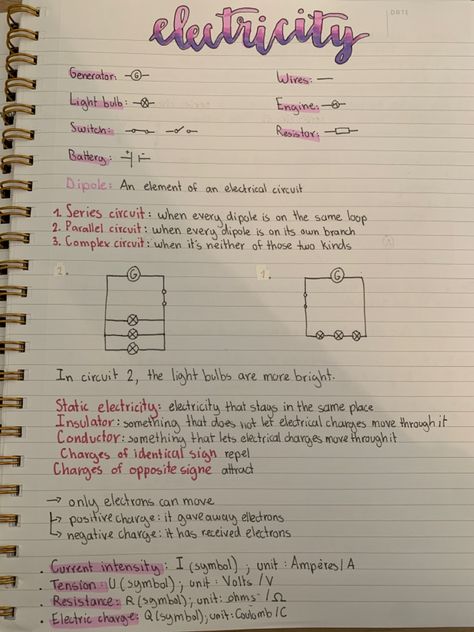 electricity
DATE
Generator: G
Wires:
Light bulb:
Engine:
Switch:
Resistor:
Battery: + -
Dipole: An element of an electrical circuit
1. Series circuit: when every dipole is on the same loop
2. Parallel circuit: when every dipole is on its own branch
3. Complex circuit: when it's neither of those two kinds
2. G 1. G
In circuit 2, the light bulbs are more bright.
Static electricity: electricity that stays in the same place
Insulator: something that does not let electrical charges move through it
Conductor: something that lets electrical charges move through it
Charges of identical sign repel
Charges of opposite signe attract
→ only electrons can move
↳ positive charge: it gave away ellectrons
↳ negative charge: it has received electrons
. Current intensity: I (symbol) ; unit: Ampères/A
. Tension: U (symbol) ; unit: Volts /V
. Resistance: R (symbol); unit: ohms /Ω
. Electric charge: Q (symbol); unit: Coulomb/C